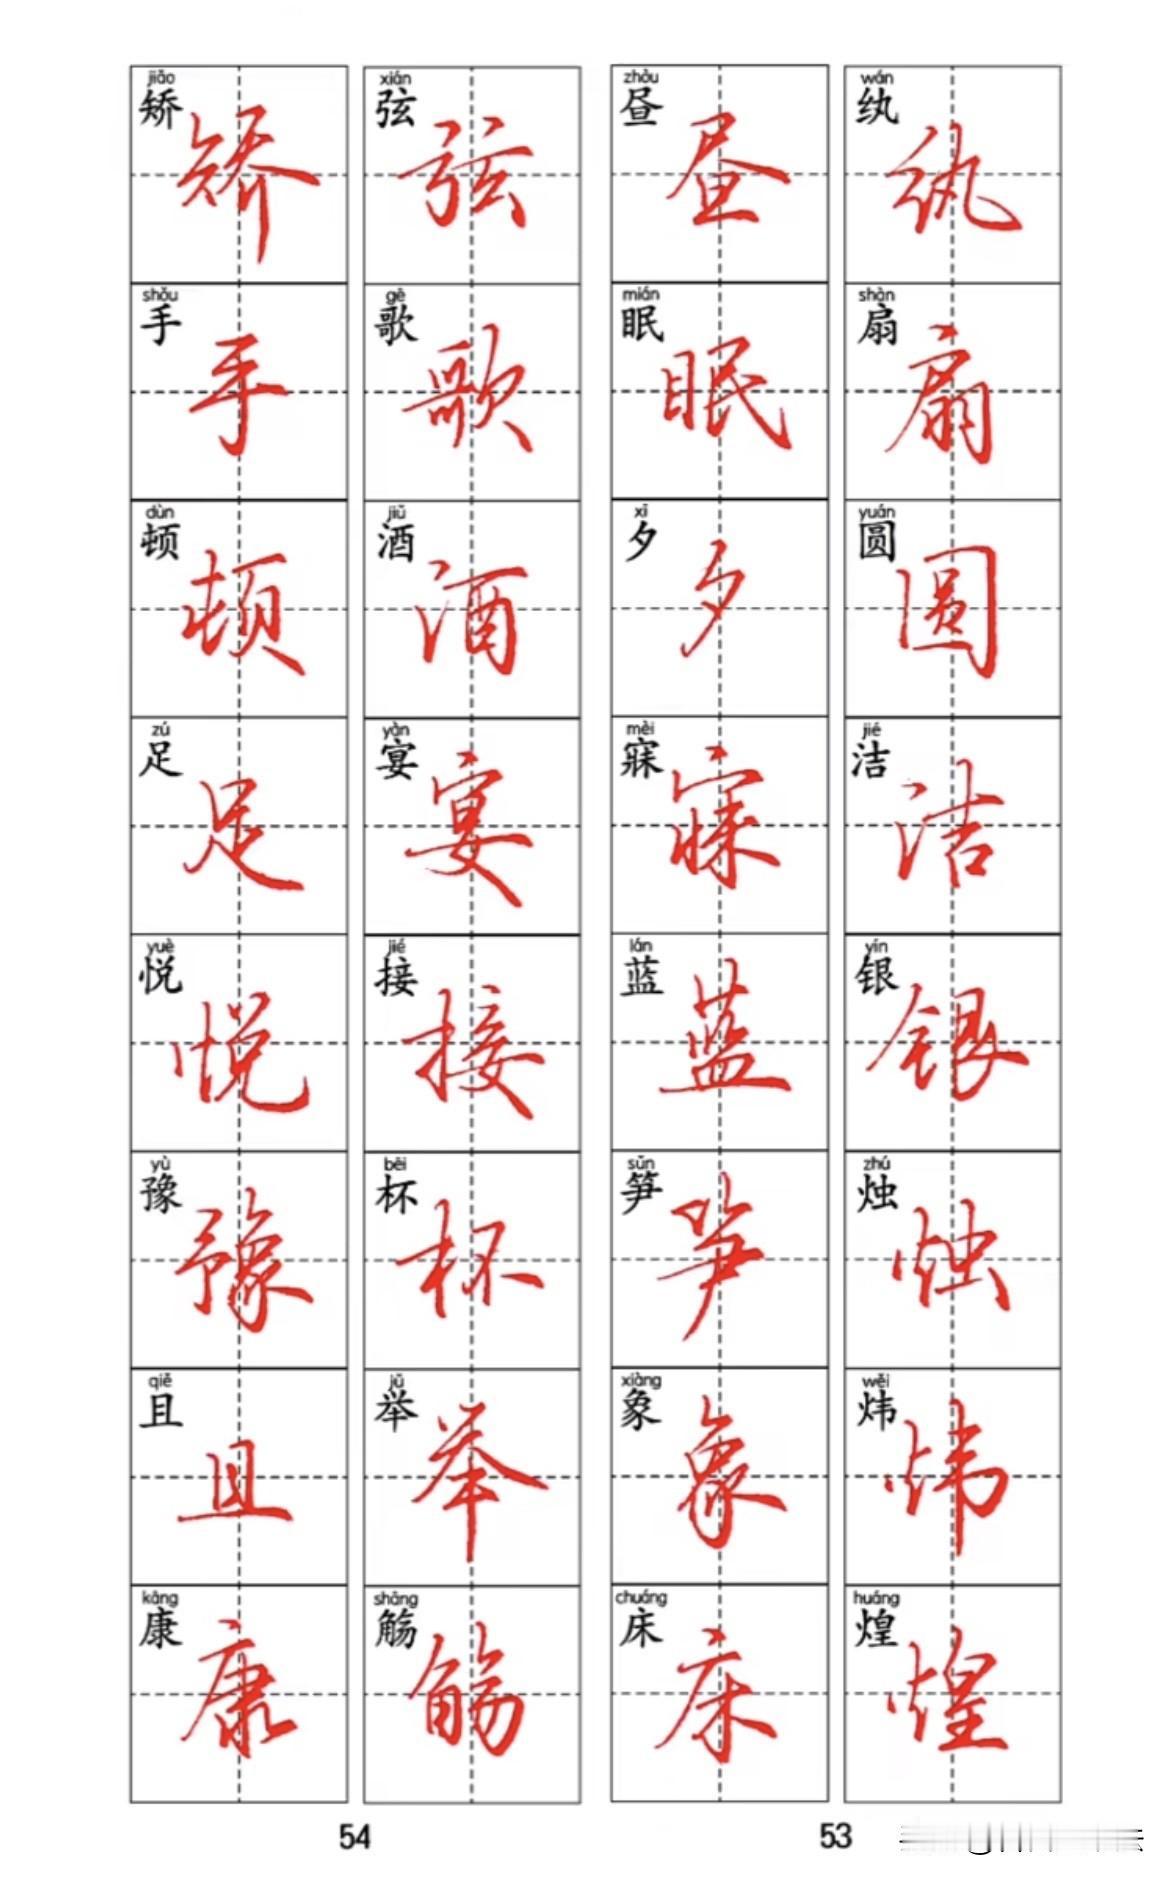 wán
纨 纨
shàn
扇 扇
yuán
圆 圆
jié
洁 洁
yín
银 银
zhú
烛 烛
wěi
炜 炜
huáng
煌 煌
zhòu
昼 昼
mián
眠 眠
xī
夕 夕
mèi
寐 寐
lán
蓝 蓝
sǔn
笋 笋
xiàng
象 象
chuáng
床 床
53
xián
弦 弦
gē
歌 歌
jiǔ
酒 酒
yàn
宴 宴
jié
接 接
bēi
杯 杯
jǔ
举 举
shāng
觞 觞
jiǎo
矫 矫
shǒu
手 手
dùn
顿 顿
zú
足 足
yuè
悦 悦
yù
豫 豫
qiě
且 且
kāng
康 康
54